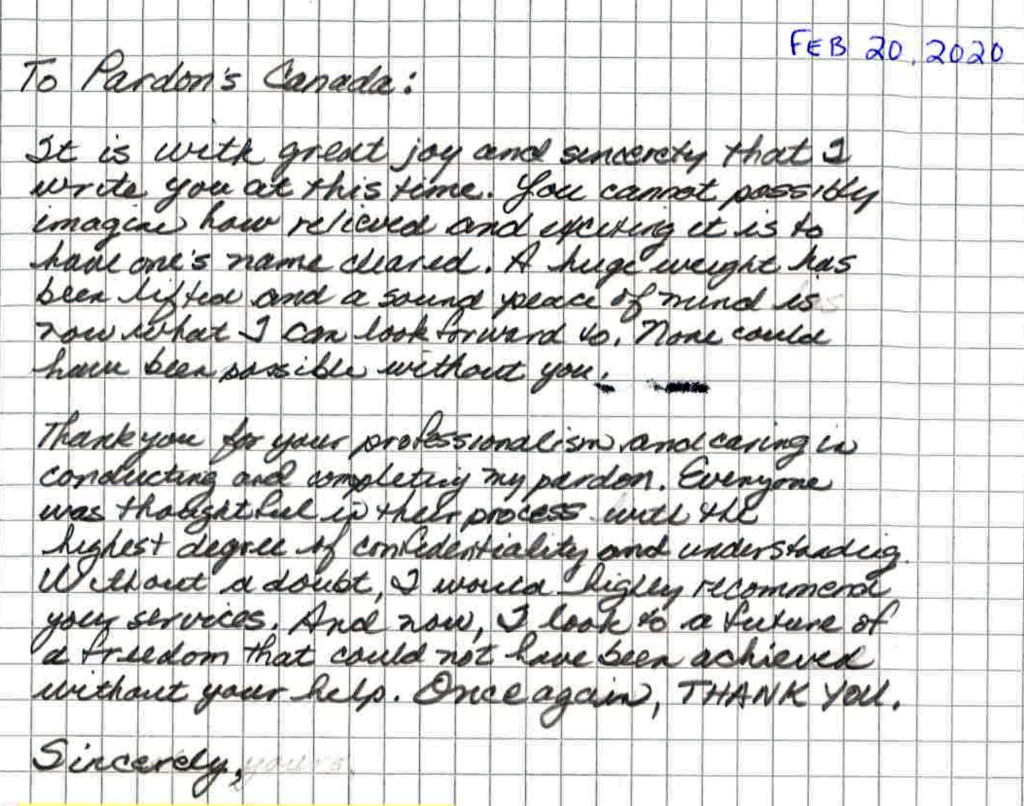 FEB 20, 2020
To Pardon's Canada:
It is with great joy and sincerety that I
write you at this time. You cannot possibly
imagine how relieved and exciting it is to
have one's name cleared. A huge weight has
been lifted and a sound peace of mind is
now what I can look forward to. None could
have been possible without you.
Thank you for your professionalism and caring in
conducting and completing my pardon. Everyone
was thoughtful in their process with the
highest degree of confidentiality and understanding.
Without a doubt, I would highly recommend
your services. And now, I look to a future of
a freedom that could not have been achieved
without your help. Once again, THANK YOU.
Sincerely, yours,